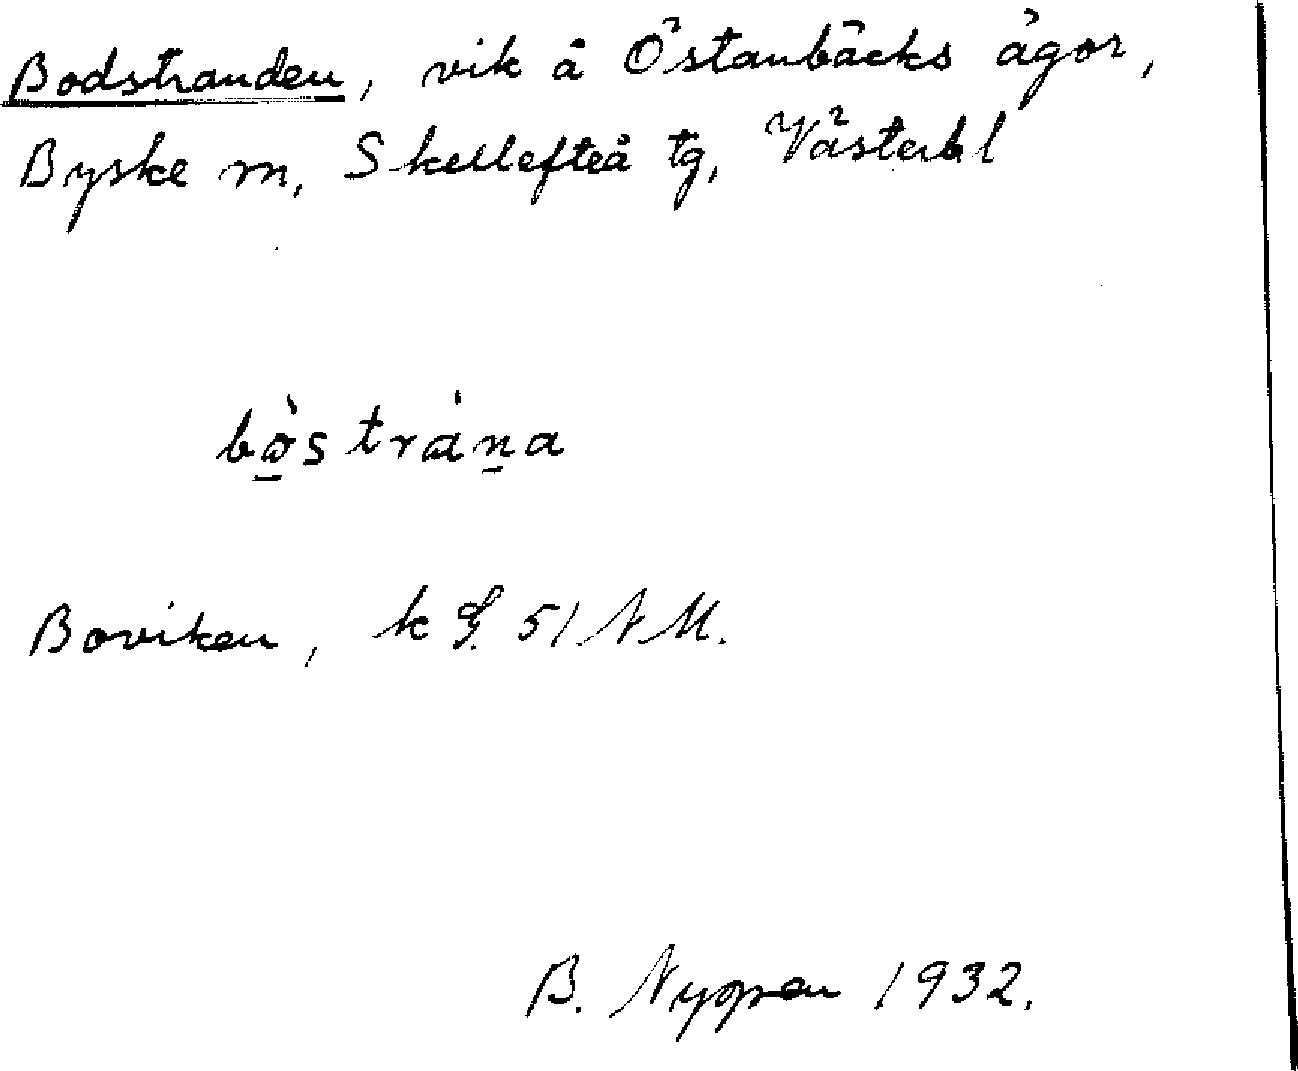 Bodstranden, vik å Östanbäcks ägor,
Byske sn, Skellefteå tg, Västerbl
bòstrána
Boviken, k S. 51 N M.
B. Nygren 1932.